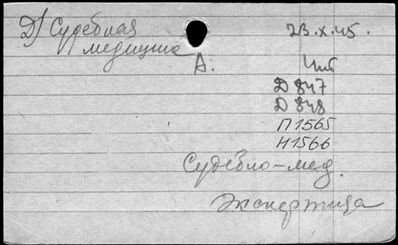 Д/ Судебная 23.X.45.
медицина
А. Чит
Д 847
Д 848
П 1565
Н 1566
Судебно-мед.
Экспертиза